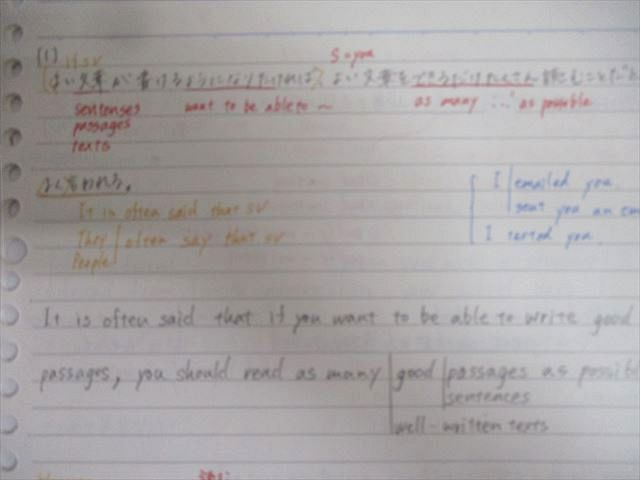 (1) if SV
S=you
よい文章が書けるようになりたければ、よい文章をできるだけたくさん読むことだと
sentenses want to be able to ~ as many … as possible
passages
texts
よく言われる。
It is often said that SV
They often say that SV
People
I emailed you.
sent you an em
I texted you.
It is often said that if you want to be able to write good
passages, you should read as many good passages as possib
sentences
well-written texts